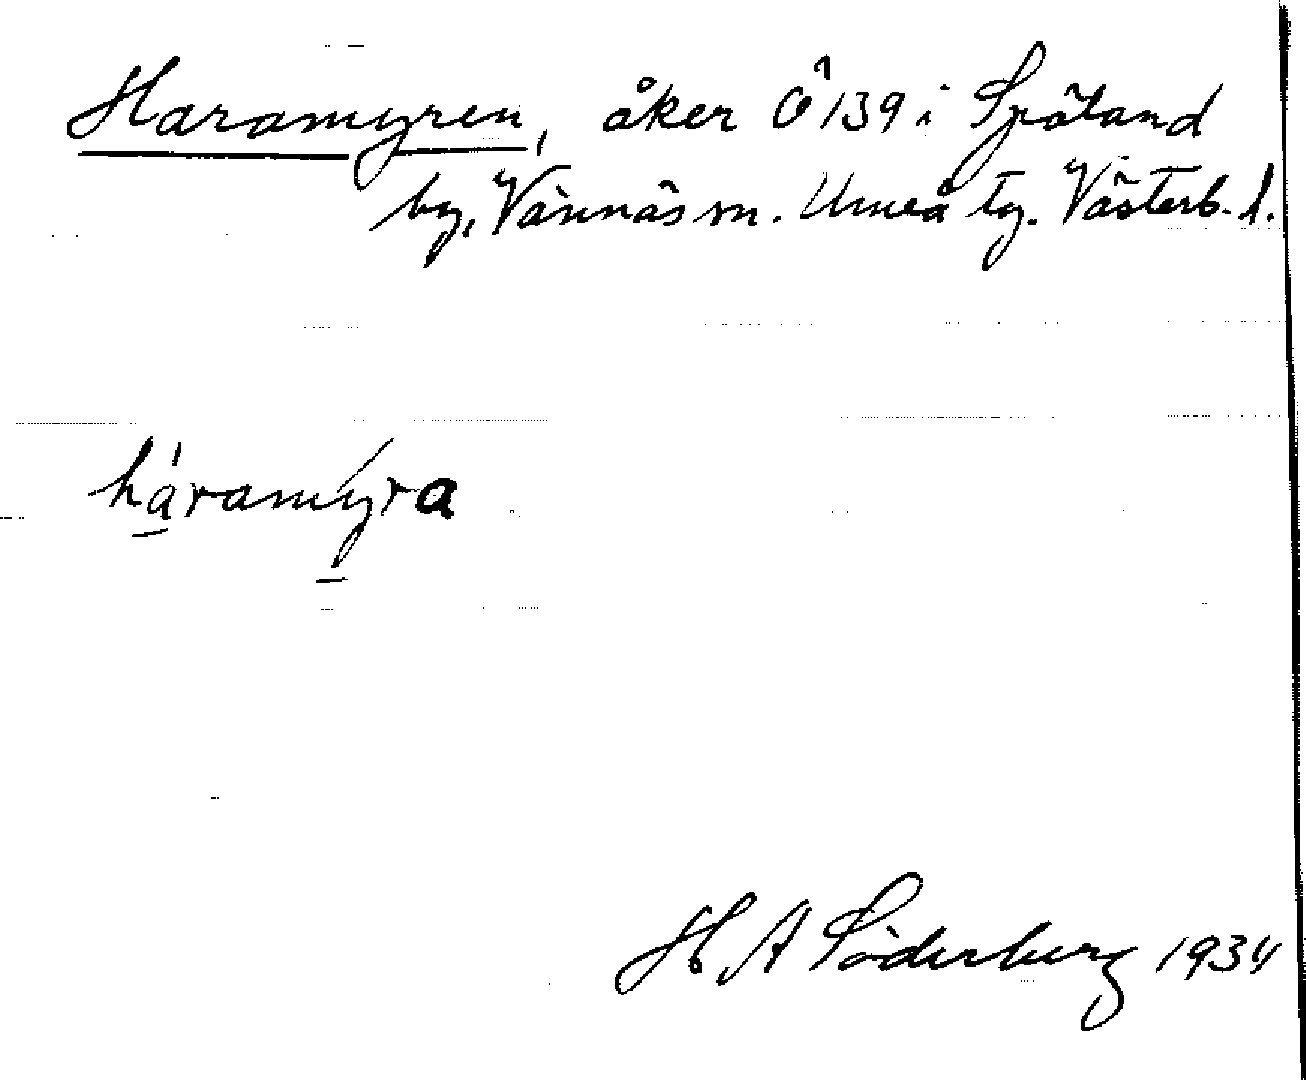 Haramyren, åker Ö 139 i Spöland
by, Vännäs sn. Umeå tg. Västerb. l.
háramýra
H A Söderberg 1934